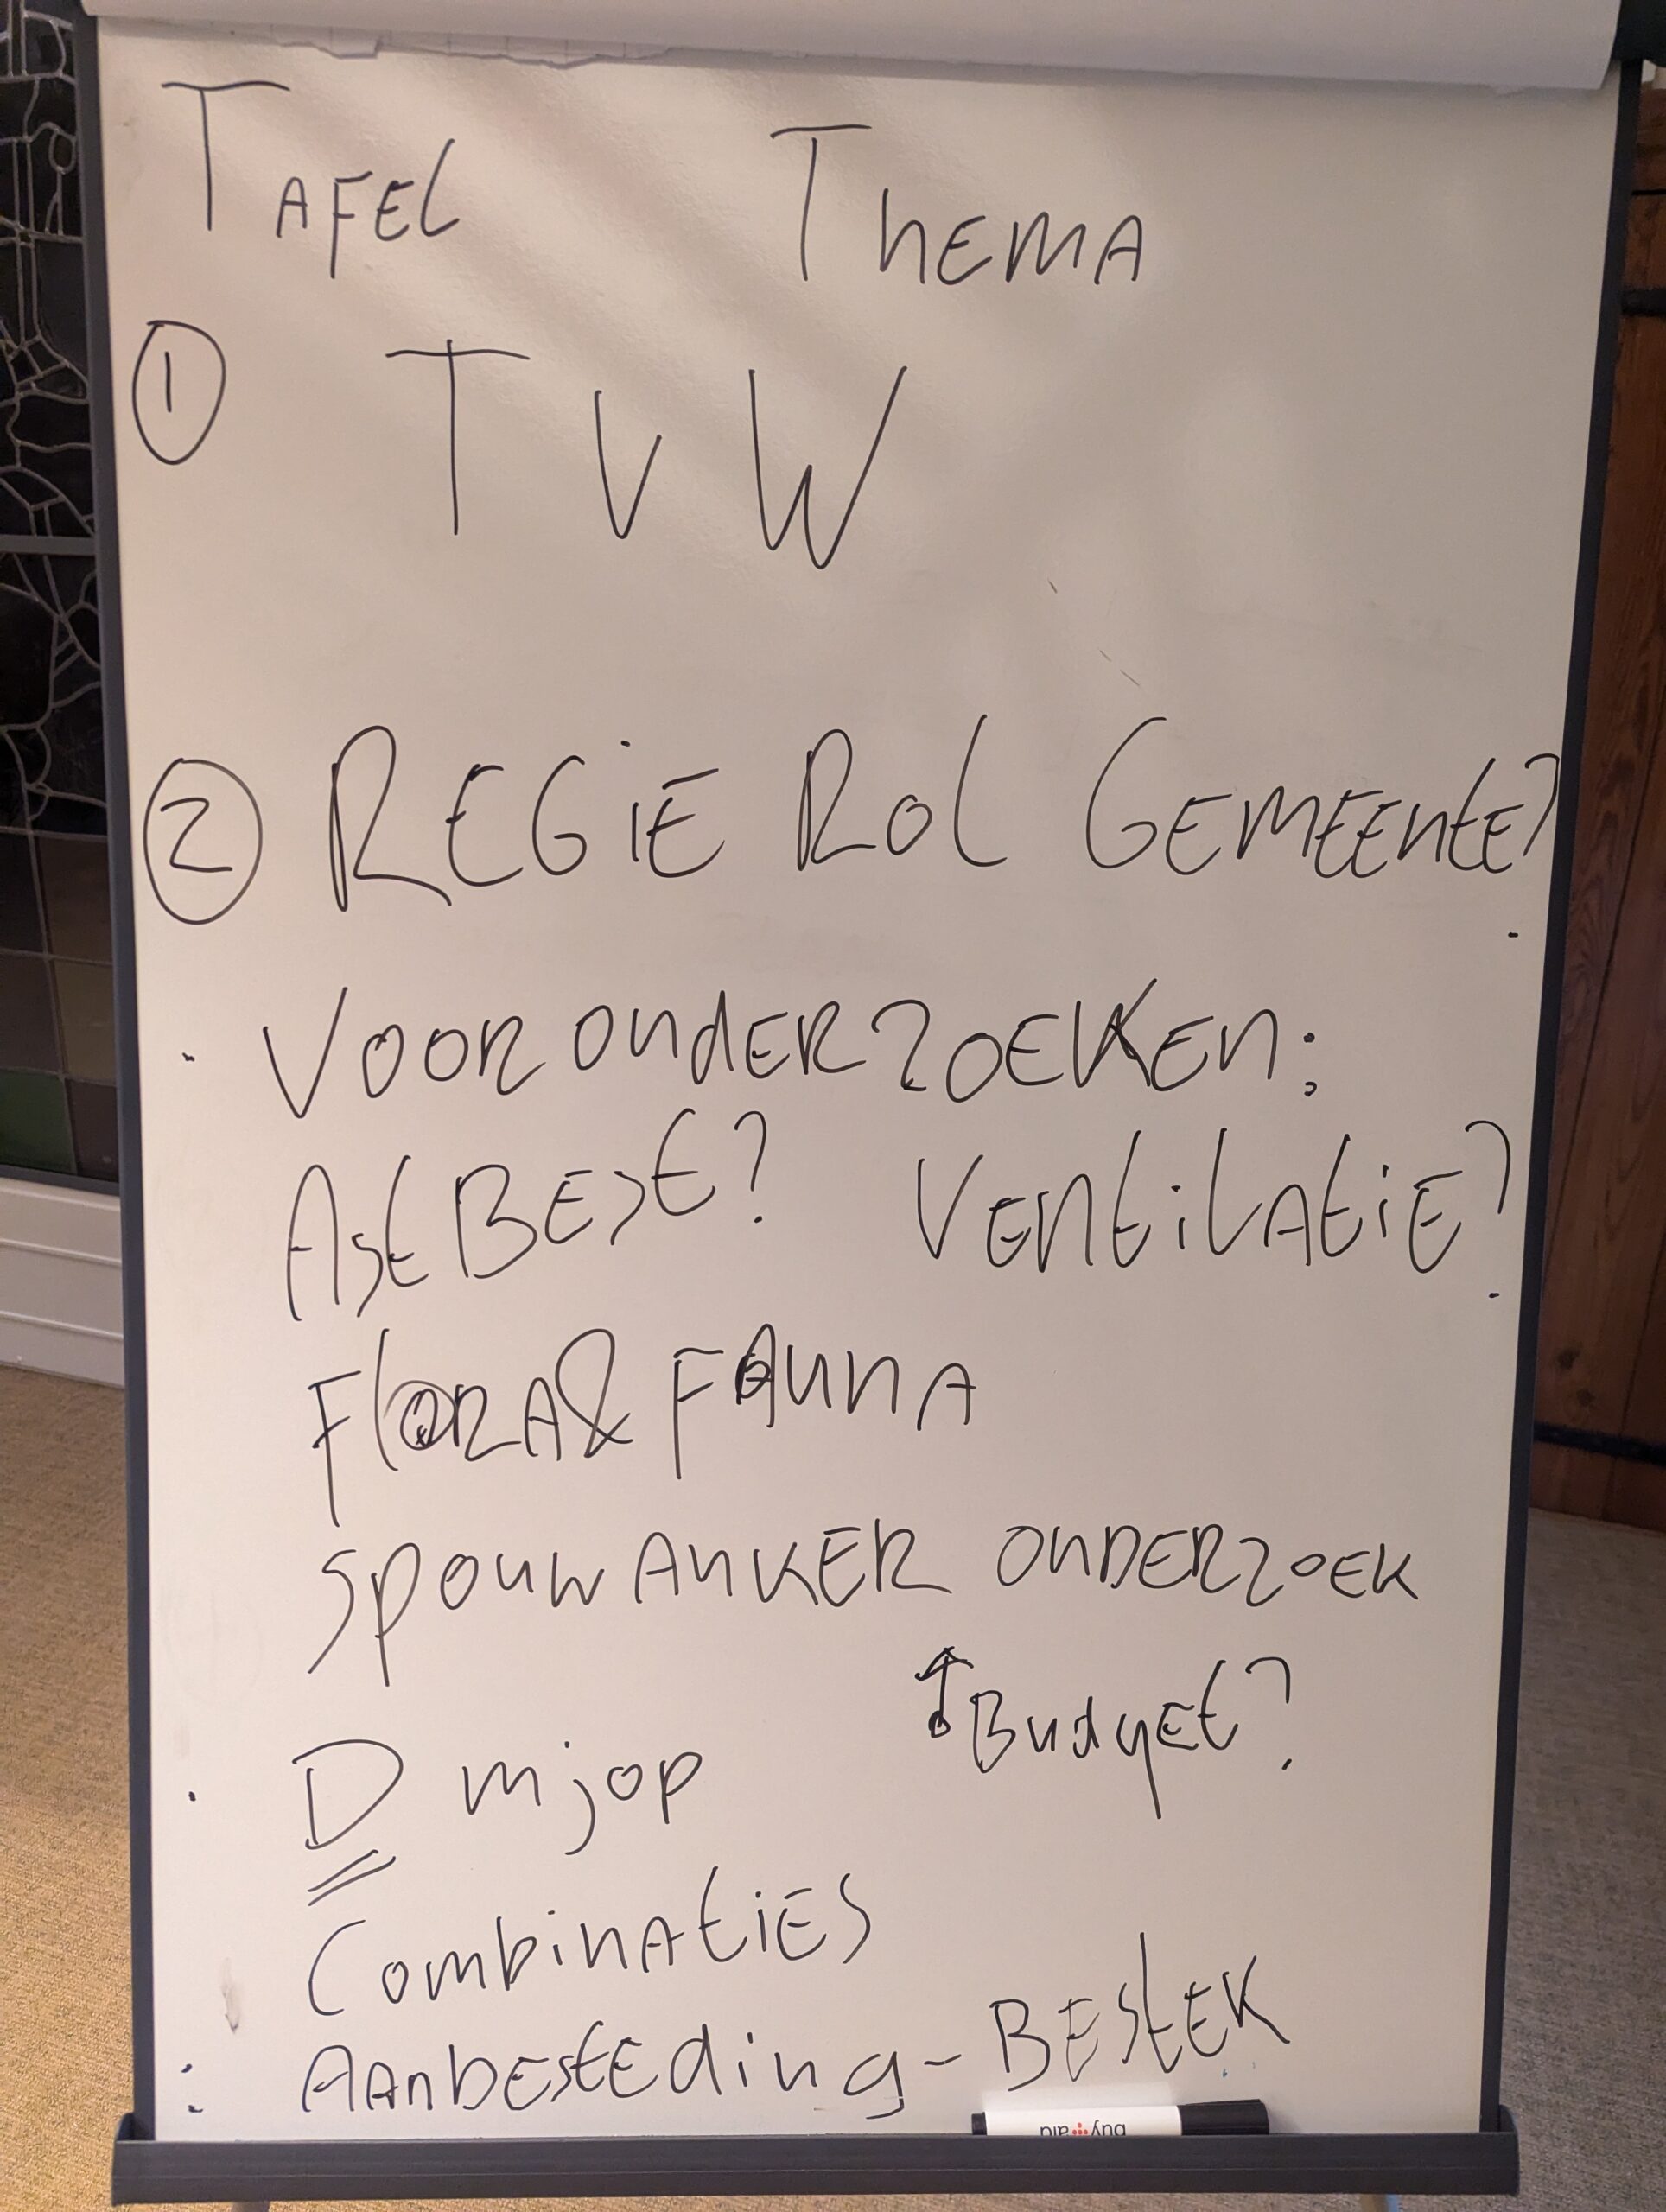 TAFEL THEMA
① TVW
② REGIE ROL GEMEENTE?
· VOORONDERZOEKEN:
AstBEST? VENTILATIE?
FLORA & FAUNA
SPOUWANKER ONDERZOEK
↑ Budget?
· D mjop
CombinatiES
: AANbESTEding - BESTEK
buy aid